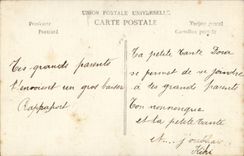 UNION POSTALE UNIVERSELLE
CARTE POSTALE
Postkarte
Postcard
Tarjeta postal
Cartolina postale
Tes grands parents
t'envoient un gros baiser
Rappaport
Ta petite tante Dora
se permet de se joindre
à tes grands parents
Ton nononcque
et la petite tante
et... j'oubliais
Kiki